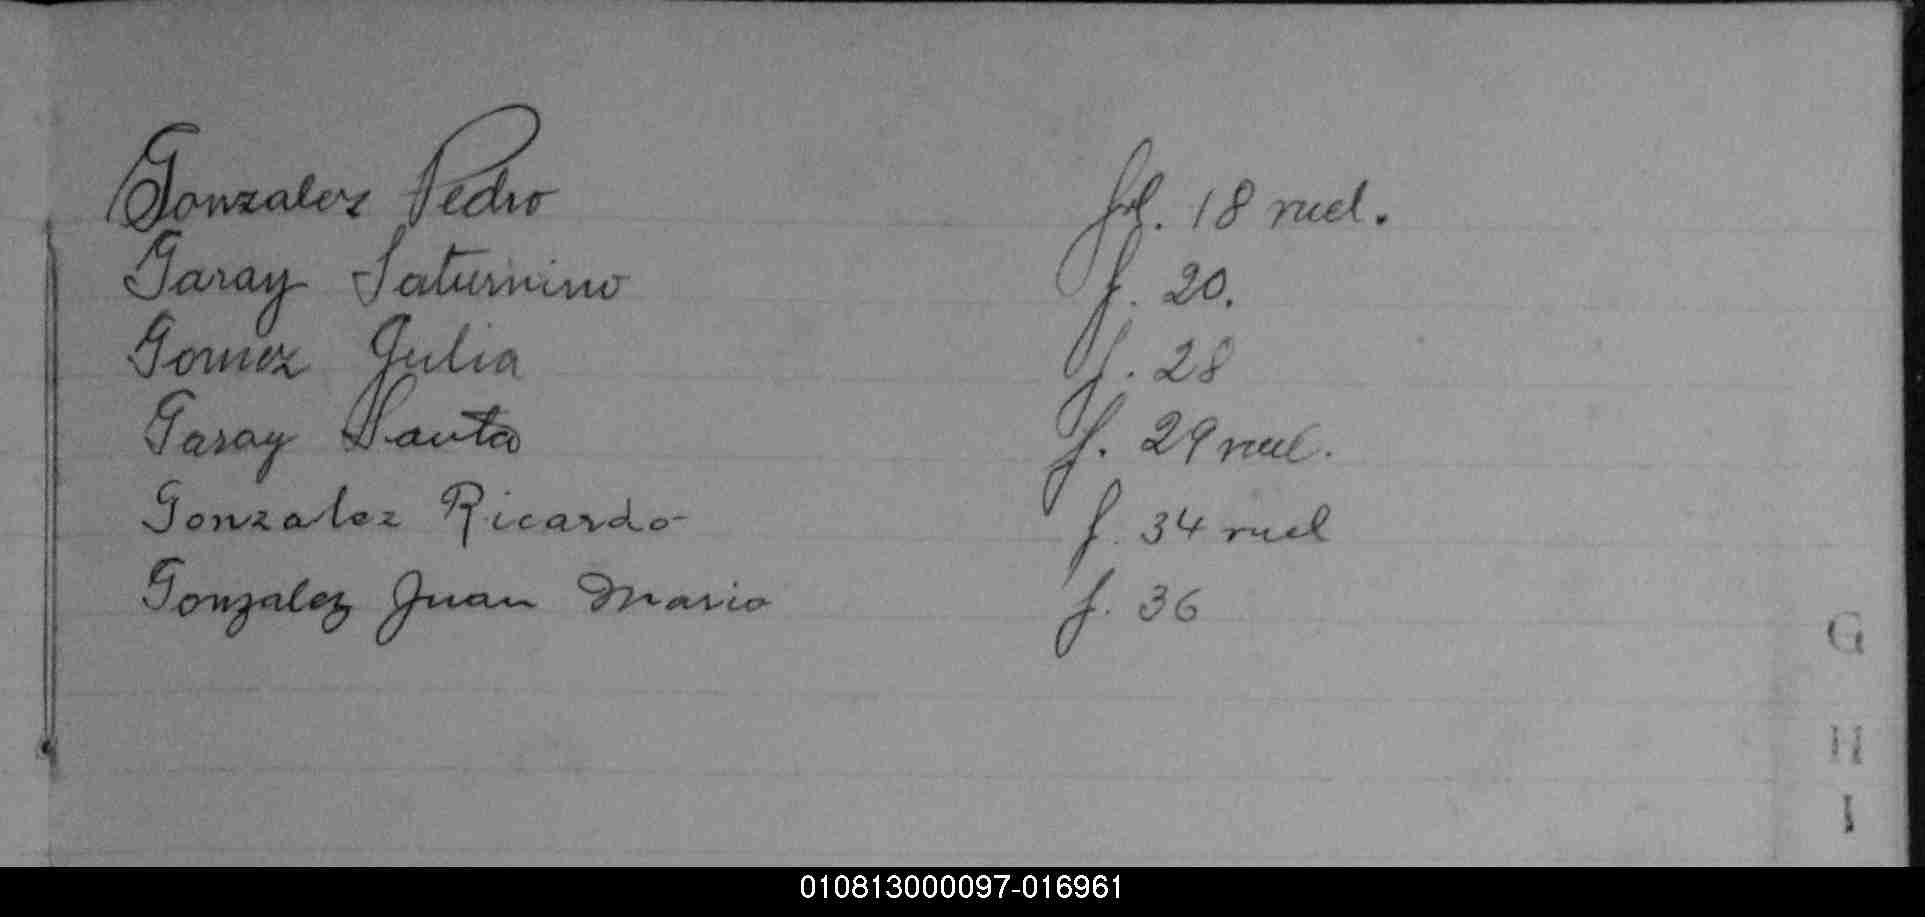 Gonzalez Pedro fol. 18 vuel.
Garay Saturnino f. 20.
Gomez Julia f. 28
Garay Santa f. 29 vuel.
Gonzalez Ricardo f. 34 vuel
Gonzalez Juan Mario f. 36
G
H
I
010813000097-016961